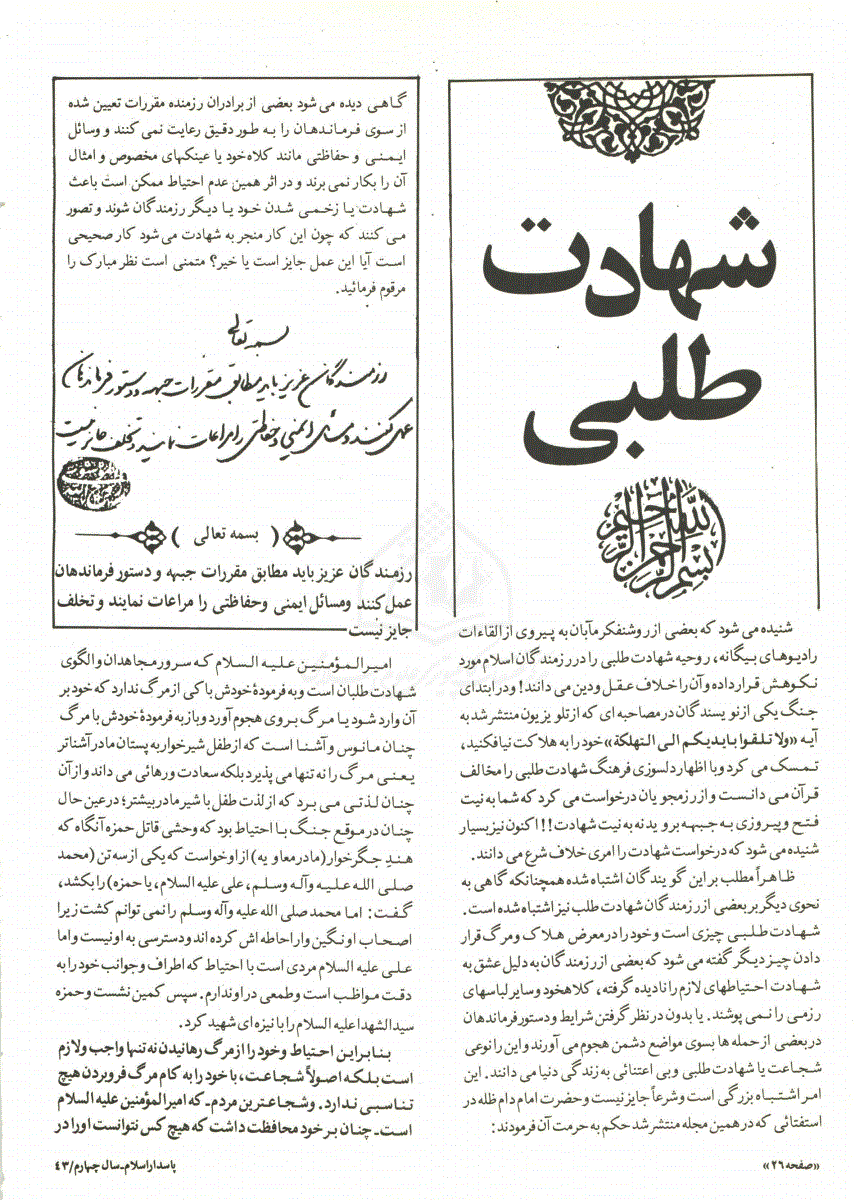 شهادت
طلبی
بسم الله الرحمن الرحیم
شنیده می شود که بعضی از روشنفکر مآبان به پیروی از القاءات
رادیوهای بیگانه، روحیه شهادت طلبی را در رزمندگان اسلام مورد
نکوهش قرار داده و آن را خلاف عقل و دین می دانند! و در ابتدای
جنگ یکی از نویسندگان در مصاحبه ای که از تلویزیون منتشر شد به
آیه «ولا تلقوا بایدیکم الی التهلکة» خود را به هلاکت نیافکنید،
تمسک می کرد و با اظهار دلسوزی فرهنگ شهادت طلبی را مخالف
قرآن می دانست و از رزمجویان درخواست می کرد که شما به نیت
فتح و پیروزی به جبهه بروید نه به نیت شهادت!! اکنون نیز بسیار
شنیده می شود که درخواست شهادت را امری خلاف شرع می دانند.
ظاهراً مطلب بر این گویندگان اشتباه شده همچنانکه گاهی به
نحوی دیگر بر بعضی از رزمندگان شهادت طلب نیز اشتباه شده است.
شهادت طلبی چیزی است و خود را در معرض هلاک و مرگ قرار
دادن چیز دیگر گفته می شود که بعضی از رزمندگان به دلیل عشق به
شهادت احتیاطهای لازم را نادیده گرفته، کلاهخود و سایر لباسهای
رزمی را نمی پوشند. یا بدون در نظر گرفتن شرایط و دستور فرماندهان
در بعضی از حمله ها بسوی مواضع دشمن هجوم می آورند و این را نوعی
شجاعت یا شهادت طلبی و بی اعتنائی به زندگی دنیا می دانند. این
امر اشتباه بزرگی است و شرعاً جایز نیست و حضرت امام دام ظله در
استفتائی که در همین مجله منتشر شد حکم به حرمت آن فرمودند:
گاهی دیده می شود بعضی از برادران رزمنده مقررات تعیین شده
از سوی فرماندهان را به طور دقیق رعایت نمی کنند و وسائل
ایمنی و حفاظتی مانند کلاه خود یا عینکهای مخصوص و امثال
آن را بکار نمی برند و در اثر همین عدم احتیاط ممکن است باعث
شهادت یا زخمی شدن خود یا دیگر رزمندگان شوند و تصور
می کنند که چون این کار منجر به شهادت می شود کار صحیحی
است آیا این عمل جایز است یا خیر؟ متمنی است نظر مبارک را
مرقوم فرمائید.
بسمه تعالی
رزمندگان عزیز باید مطابق مقررات جبهه و دستور فرماندهان
عمل کنند و مسائل ایمنی و حفاظتی را مراعات نمایند و تخلف جایز نیست
( بسمه تعالی )
رزمندگان عزیز باید مطابق مقررات جبهه و دستور فرماندهان
عمل کنند ومسائل ایمنی وحفاظتی را مراعات نمایند و تخلف
جایز نیست
امیرالمؤمنین علیه السلام که سرور مجاهدان والگوی
شهادت طلبان است و به فرمودهٔ خودش با کی از مرگ ندارد که خود بر
آن وارد شود یا مرگ بر وی هجوم آورد و باز به فرمودهٔ خودش با مرگ
چنان مانوس و آشنا است که از طفل شیرخوار به پستان مادر آشناتر
یعنی مرگ را نه تنها می پذیرد بلکه سعادت و رهائی می داند و از آن
چنان لذتی می برد که از لذت طفل با شیر مادر بیشتر؛ در عین حال
چنان در موقع جنگ با احتیاط بود که وحشی قاتل حمزه آنگاه که
هند جگرخوار (مادر معاویه) از او خواست که یکی از سه تن (محمد
صلی الله علیه وآله وسلم، علی علیه السلام، یا حمزه) را بکشد،
گفت: اما محمد صلی الله علیه وآله وسلم را نمی توانم کشت زیرا
اصحاب او نگین وار احاطه اش کرده اند و دسترسی به او نیست و اما
علی علیه السلام مردی است با احتیاط که اطراف و جوانب خود را به
دقت مواظب است و طمعی در او ندارم. سپس کمین نشست و حمزه
سیدالشهدا علیه السلام را با نیزه ای شهید کرد.
بنابراین احتیاط و خود را از مرگ رهانیدن نه تنها واجب و لازم
است بلکه اصولاً شجاعت، با خود را به کام مرگ فرو بردن هیچ
تناسبی ندارد. و شجاعترین مردم ـ که امیرالمؤمنین علیه السلام
است ـ چنان بر خود محافظت داشت که هیچ کس نتوانست او را در
«صفحه ۲۶»
پاسدار اسلام ـ سال چهارم/۴۳